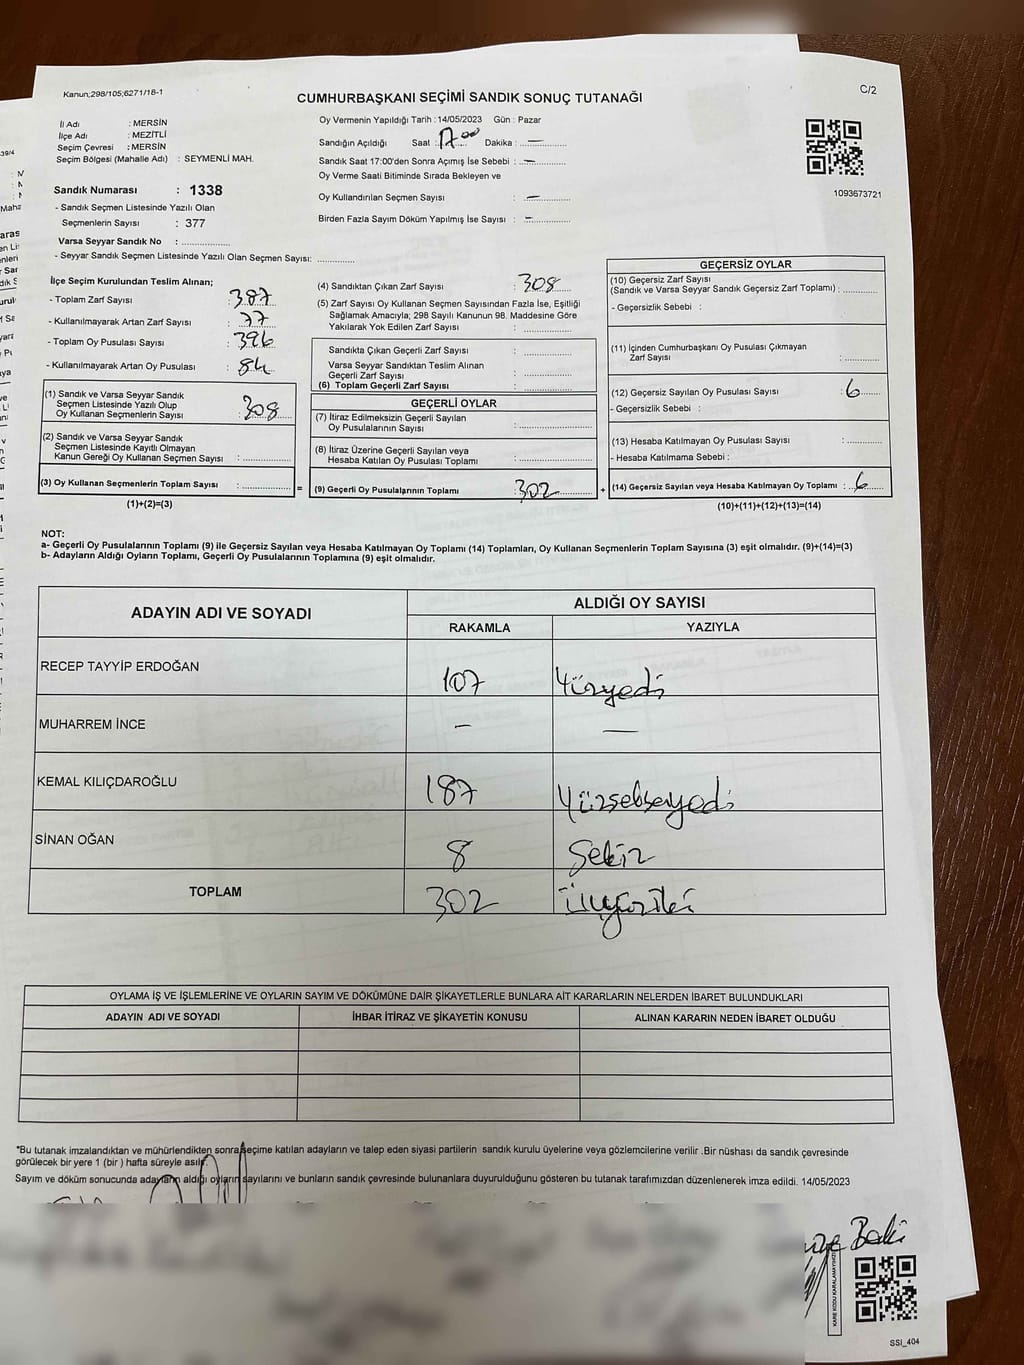 Kanun;298/105;6271/18-1
C/2
CUMHURBAŞKANI SEÇİMİ SANDIK SONUÇ TUTANAĞI
İl Adı : MERSİN
İlçe Adı : MEZİTLİ
Seçim Çevresi : MERSİN
Seçim Bölgesi (Mahalle Adı) : SEYMENLİ MAH.
Sandık Numarası : 1338
- Sandık Seçmen Listesinde Yazılı Olan
Seçmenlerin Sayısı : 377
Varsa Seyyar Sandık No : ..............
- Seyyar Sandık Seçmen Listesinde Yazılı Olan Seçmen Sayısı: ............
Oy Vermenin Yapıldığı Tarih : 14/05/2023 Gün : Pazar
Sandığın Açıldığı Saat : 17:00 Dakika : —
Sandık Saat 17:00'den Sonra Açımış İse Sebebi : —
Oy Verme Saati Bitiminde Sırada Bekleyen ve
Oy Kullandırılan Seçmen Sayısı : —
Birden Fazla Sayım Döküm Yapılmış İse Sayısı : —
1093673721
İlçe Seçim Kurulundan Teslim Alınan;
- Toplam Zarf Sayısı : 387
- Kullanılmayarak Artan Zarf Sayısı : 77
- Toplam Oy Pusulası Sayısı : 396
- Kullanılmayarak Artan Oy Pusulası : 84
(1) Sandık ve Varsa Seyyar Sandık
Seçmen Listesinde Yazılı Olup
Oy Kullanan Seçmenlerin Sayısı : 308
(2) Sandık ve Varsa Seyyar Sandık
Seçmen Listesinde Kayıtlı Olmayan
Kanun Gereği Oy Kullanan Seçmen Sayısı : ............
(3) Oy Kullanan Seçmenlerin Toplam Sayısı : ............ =
(1)+(2)=(3)
(4) Sandıktan Çıkan Zarf Sayısı : 308
(5) Zarf Sayısı Oy Kullanan Seçmen Sayısından Fazla İse, Eşitliği
Sağlamak Amacıyla; 298 Sayılı Kanunun 98. Maddesine Göre
Yakılarak Yok Edilen Zarf Sayısı : ............
Sandıkta Çıkan Geçerli Zarf Sayısı : ............
Varsa Seyyar Sandıktan Teslim Alınan
Geçerli Zarf Sayısı : ............
(6) Toplam Geçerli Zarf Sayısı : ............
GEÇERLİ OYLAR
(7) İtiraz Edilmeksizin Geçerli Sayılan
Oy Pusulalarının Sayısı : ............
(8) İtiraz Üzerine Geçerli Sayılan veya
Hesaba Katılan Oy Pusulası Toplamı : ............
(9) Geçerli Oy Pusulalarının Toplamı : 302 +
GEÇERSİZ OYLAR
(10) Geçersiz Zarf Sayısı
(Sandık ve Varsa Seyyar Sandık Geçersiz Zarf Toplamı) : ............
- Geçersizlik Sebebi :
(11) İçinden Cumhurbaşkanı Oy Pusulası Çıkmayan
Zarf Sayısı : ............
(12) Geçersiz Sayılan Oy Pusulası Sayısı : 6
- Geçersizlik Sebebi :
(13) Hesaba Katılmayan Oy Pusulası Sayısı : ............
- Hesaba Katılmama Sebebi :
(14) Geçersiz Sayılan veya Hesaba Katılmayan Oy Toplamı : 6
(10)+(11)+(12)+(13)=(14)
NOT:
a- Geçerli Oy Pusulalarının Toplamı (9) ile Geçersiz Sayılan veya Hesaba Katılmayan Oy Toplamı (14) Toplamları, Oy Kullanan Seçmenlerin Toplam Sayısına (3) eşit olmalıdır. (9)+(14)=(3)
b- Adayların Aldığı Oyların Toplamı, Geçerli Oy Pusulalarının Toplamına (9) eşit olmalıdır.
ADAYIN ADI VE SOYADI ALDIĞI OY SAYISI
RAKAMLA YAZIYLA
RECEP TAYYİP ERDOĞAN 107 Yüzyedi
MUHARREM İNCE — —
KEMAL KILIÇDAROĞLU 187 Yüzseksenyedi
SİNAN OĞAN 8 Sekiz
TOPLAM 302 Üçyüziki
OYLAMA İŞ VE İŞLEMLERİNE VE OYLARIN SAYIM VE DÖKÜMÜNE DAİR ŞİKAYETLERLE BUNLARA AİT KARARLARIN NELERDEN İBARET BULUNDUKLARI
ADAYIN ADI VE SOYADI İHBAR İTİRAZ VE ŞİKAYETİN KONUSU ALINAN KARARIN NEDEN İBARET OLDUĞU
*Bu tutanak imzalandıktan ve mühürlendikten sonra seçime katılan adayların ve talep eden siyasi partilerin sandık kurulu üyelerine veya gözlemcilerine verilir .Bir nüshası da sandık çevresinde
görülecek bir yere 1 (bir ) hafta süreyle asılır.
Sayım ve döküm sonucunda adayların aldığı oyların sayılarını ve bunların sandık çevresinde bulunanlara duyurulduğunu gösteren bu tutanak tarafımızdan düzenlenerek imza edildi. 14/05/2023
KARE KODU KARALAMAYINIZ
SSI_404